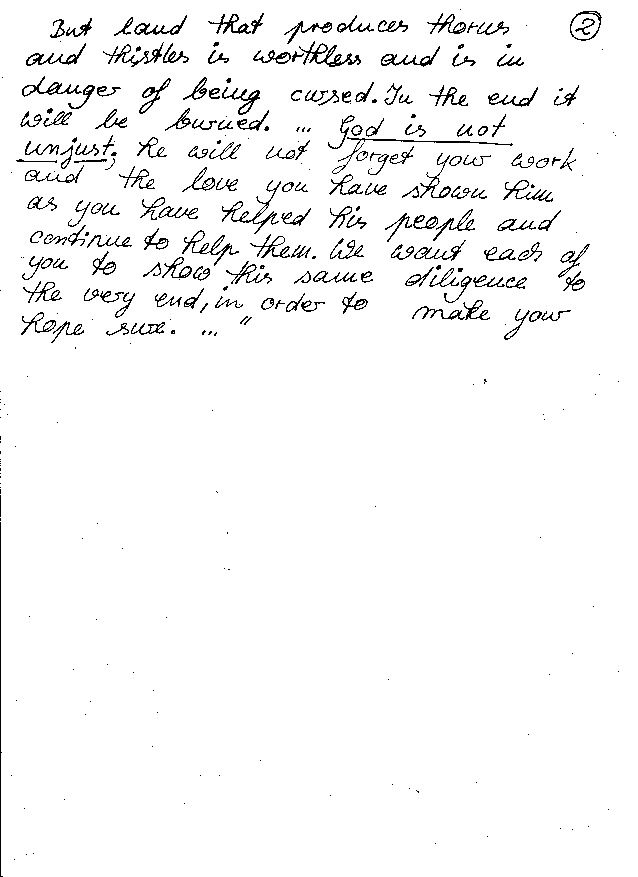 But land that produces thorns ②
and thistles is worthless and is in
danger of being cursed. In the end it
will be burned. ... God is not
unjust; he will not forget your work
and the love you have shown him
as you have helped his people and
continue to help them. We want each of
you to show this same diligence to
the very end, in order to make your
hope sure. ... "